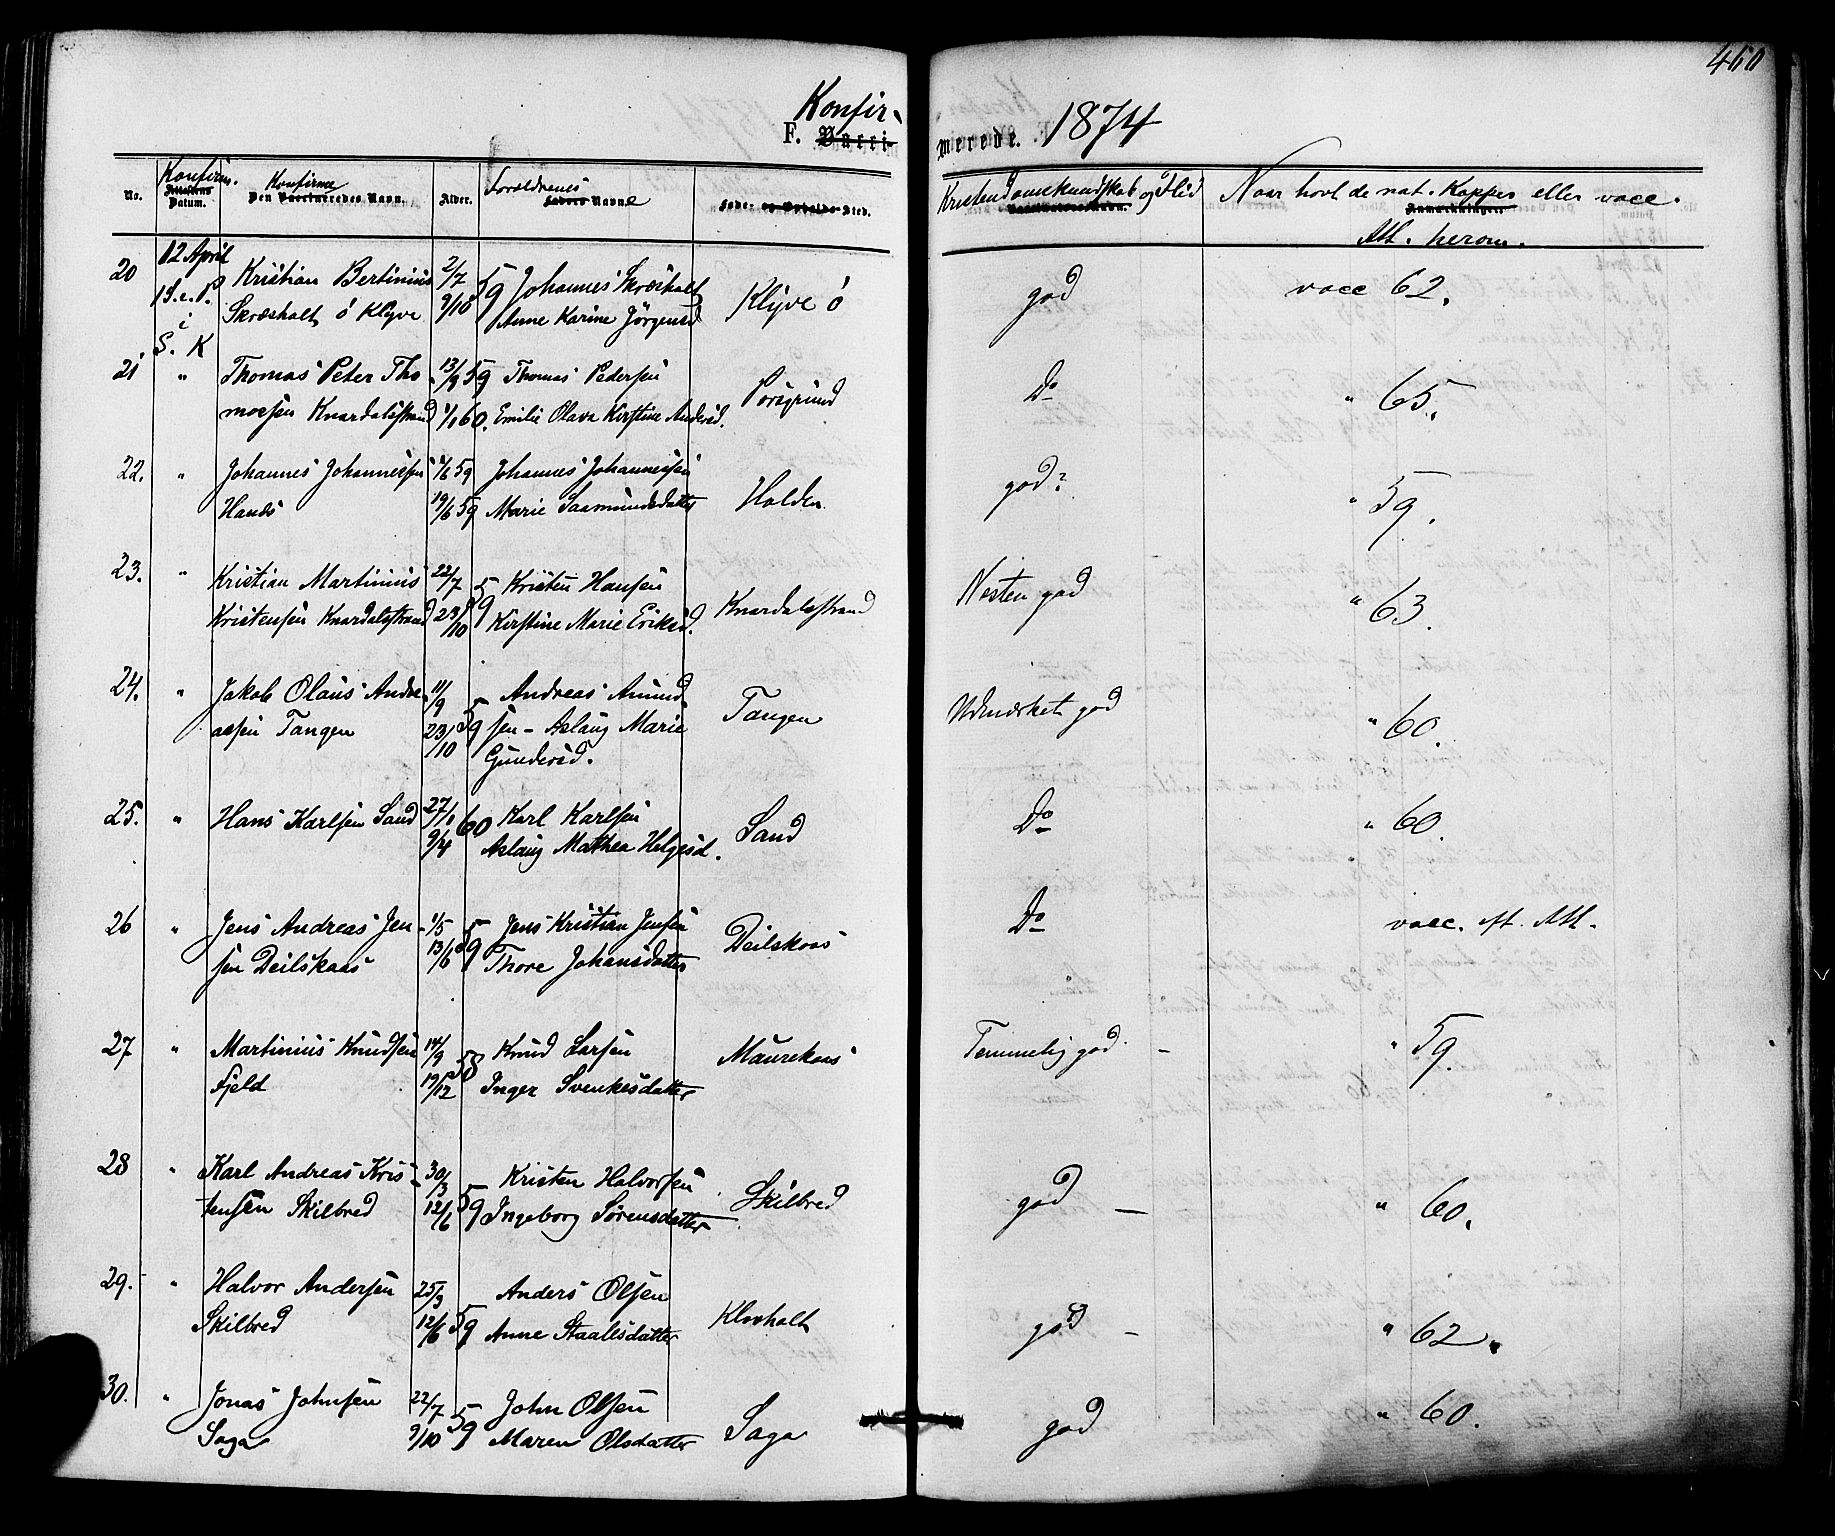 460
Konfir-
F. Vacci-
merede. 1874
No.
Konfirm.
Attestens Datum.
Konfirme
Den Vaccineredes Navn.
Alder.
Forældrenes
Faders Navne
Føde- og Opholds-Sted.
Kristendomskundskab og Flid
Naar havt de nat. Kopper eller vacc.
Anmærkninger
Att. herom.
20 12 April Kristian Bertinius 2/7 59 Johannes Skræsholt Klyve ö god vacc 62.
1 S. e. P. Skræsholt ö Klyve 9/10 Anne Karine Jörgensd
i
S. K
21 " Thomas Peter Tho- 13/9 59 Thomas Pedersen Porsgrund Do " 65.
massen Knardalsstrand 1/1 60. Emilie Olava Kirstine Andersd.
22. " Johannes Johannessen 4/6 59 Johannes Johannessen Holden god? " 59.
Hanes 19/6 59 Marie Saamundsdatter
23. " Kristian Martinius 22/7 59 Kristen Hansen Knardalsstrand Nesten god " 63.
Kristensen Knardalsstrand 23/10 Kirstine Marie Eriksd.
24. " Jakob Olaus Andre- 11/9 59 Andreas Amund Tangen Udmærket god " 60.
assen Tangen 23/10 sen - Aslaug Marie
Gundersd.
25. " Hans Karlsen Sand 27/1 60 Karl Karlsen Sand Do " 60.
9/4 Aslaug Mathea Helgesd.
26 " Jens Andreas Jen- 1/5 59 Jens Kristian Jensen Deilskaas Do vacc. eft. Att.
sen Deilskaas 13/6 Thore Johansdatter
27 " Martinius Knudsen 14/9 58 Knud Larsen Maurekaas Temmelig god. - " 59.
Fjeld 19/12 Inger Svenkesdatter
28 " Karl Andreas Kris- 30/3 59 Kristen Halvorsen Skilbred god - " 60.
tensen Skilbred 12/6 Ingeborg Sörensdatter
29. " Halvor Andersen 25/3 59 Anders Olsen Klovholt god - " 62.
Skilbred 12/6 Anne Staalesdatter
30. " Jonas Johnsen 22/7 59 John Olsen Saga god " 60.
Saga 9/10 Maren Olsdatter